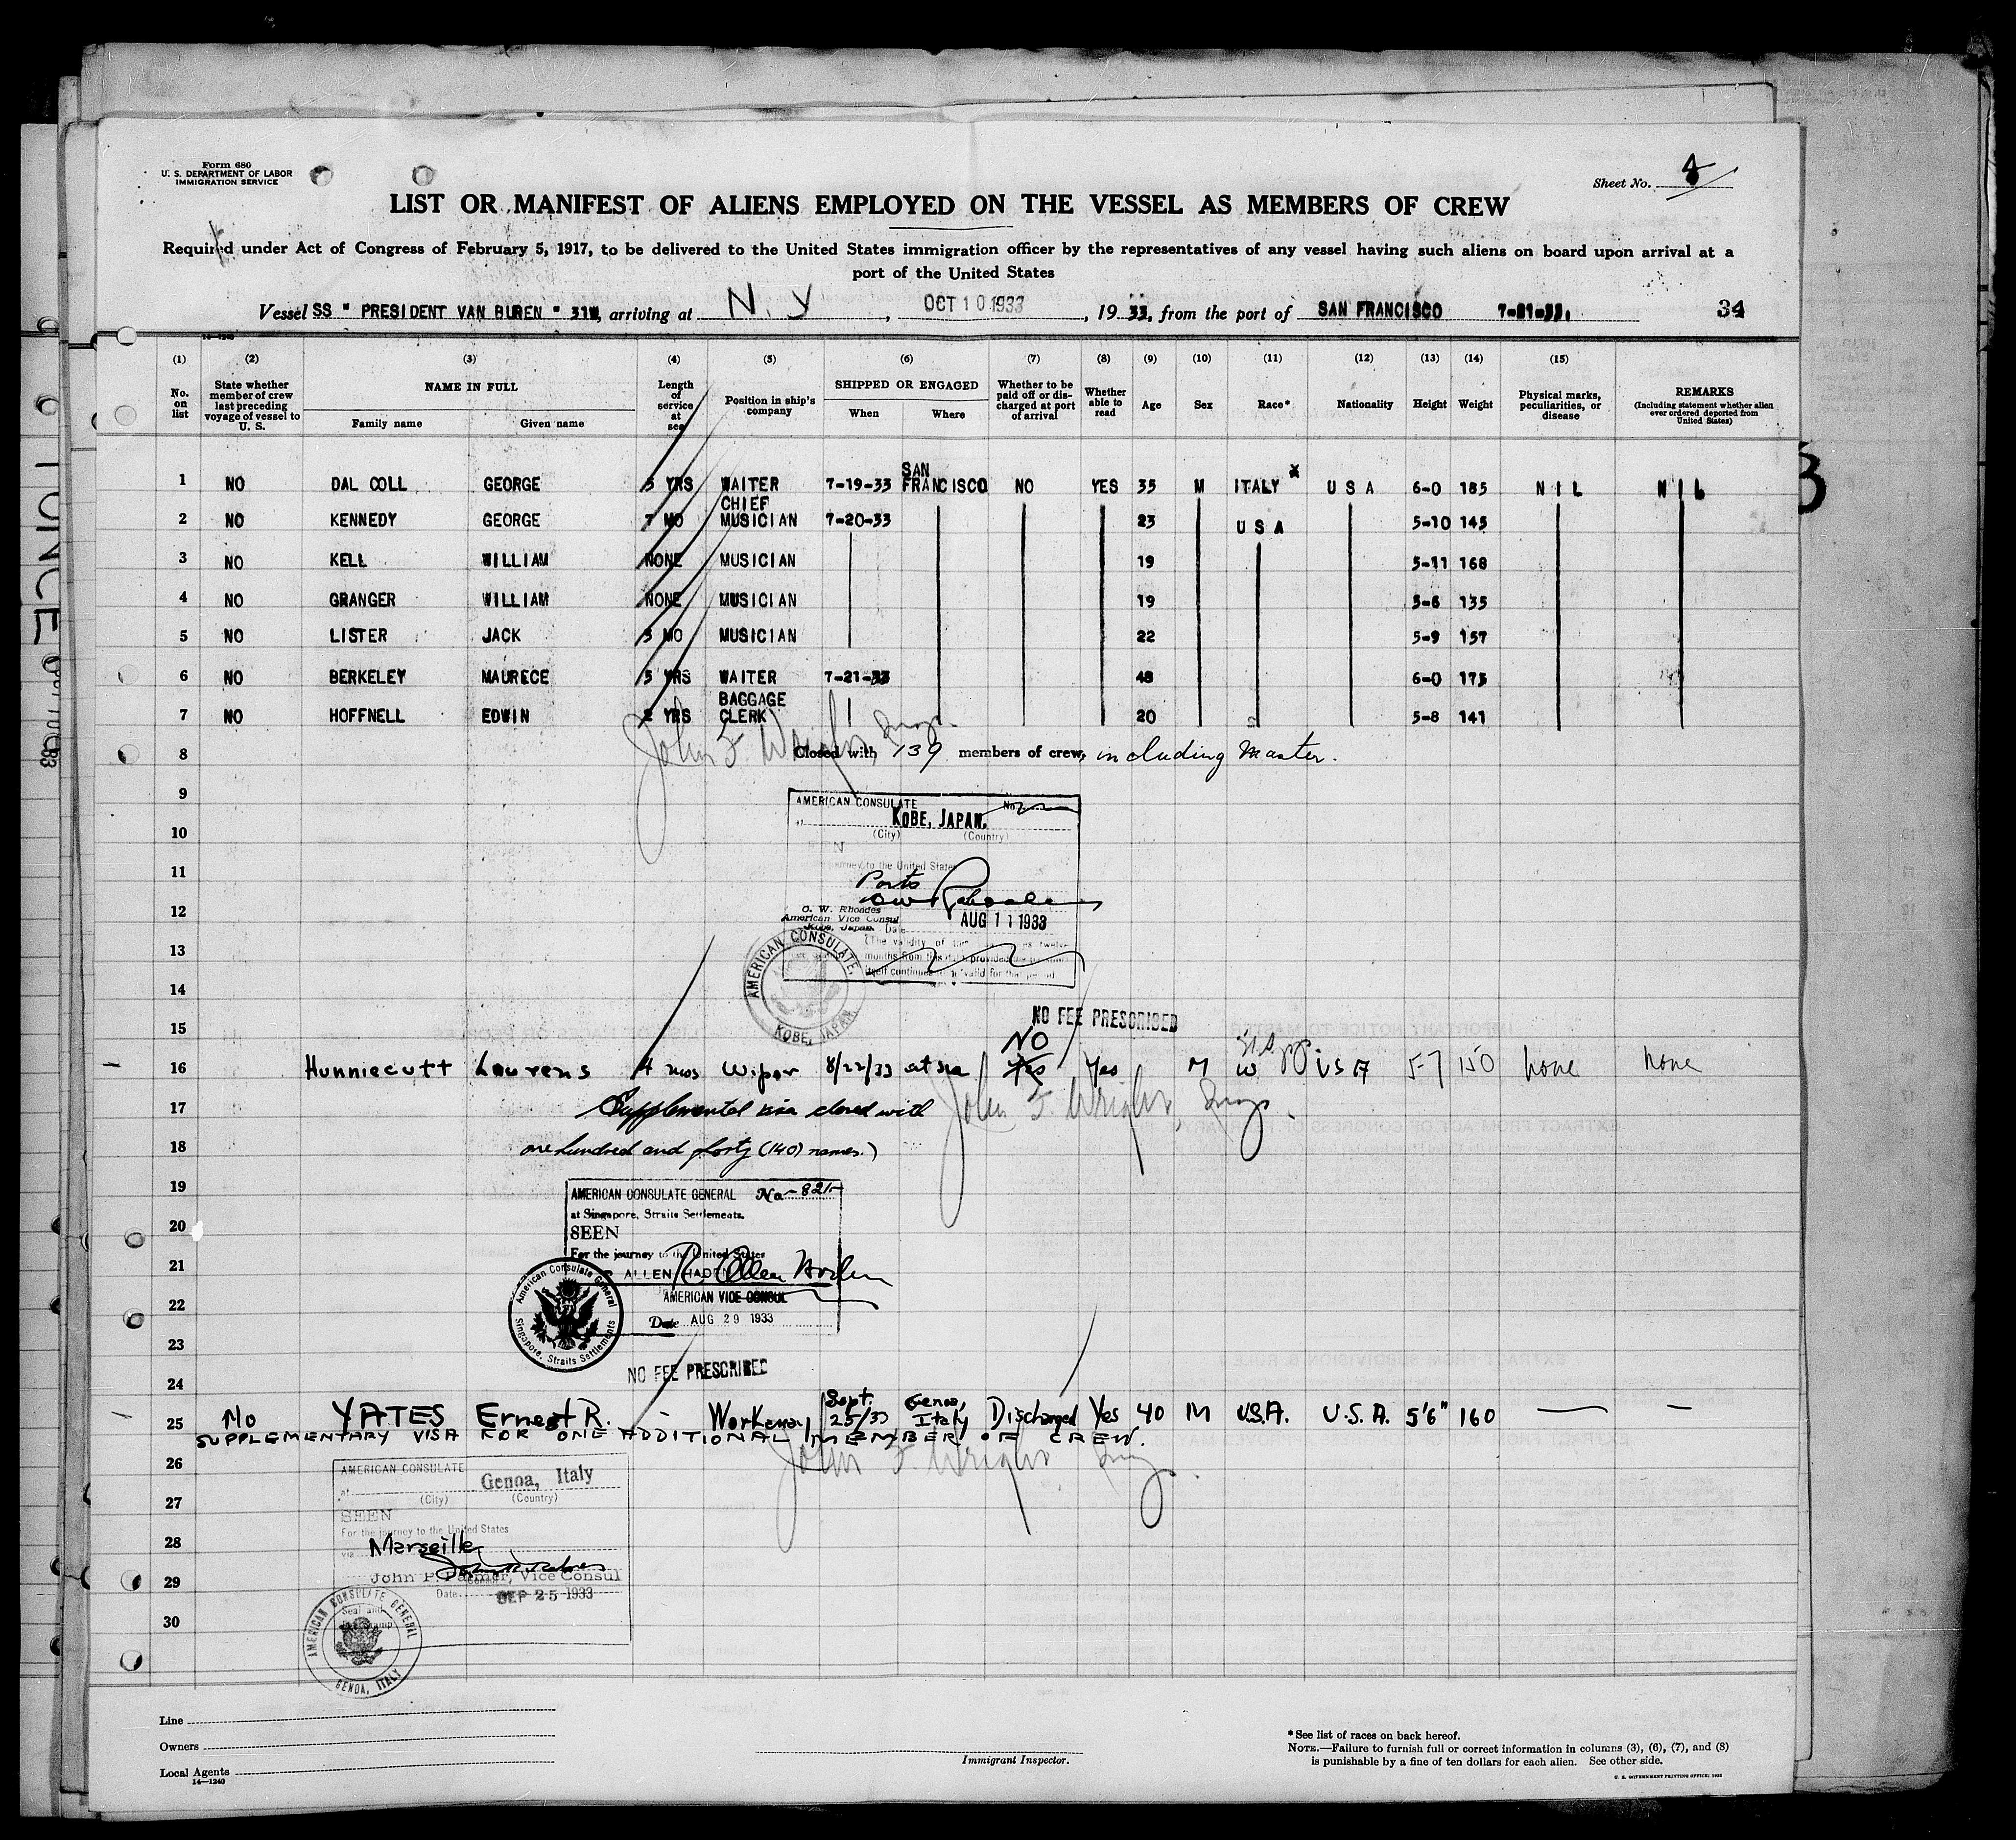 Form 680
U. S. DEPARTMENT OF LABOR
IMMIGRATION SERVICE
Sheet No.
LIST OR MANIFEST OF ALIENS EMPLOYED ON THE VESSEL AS MEMBERS OF CREW
Required under Act of Congress of February 5, 1917, to be delivered to the United States immigration officer by the representatives of any vessel having such aliens on board upon arrival at a
port of the United States
Vessel SS " PRESIDENT VAN BUREN " 31W, arriving at N. Y, OCT 10 1933, 19 33, from the port of SAN FRANCISCO 7-21-33. 34
14-1240
(1) (2) (3) (4) (5) (6) (7) (8) (9) (10) (11) (12) (13) (14) (15)
No. on list
State whether member of crew last preceding voyage of vessel to U. S.
NAME IN FULL
Family name Given name
Length of service at sea
Position in ship's company
SHIPPED OR ENGAGED
When Where
Whether to be paid off or discharged at port of arrival
Whether able to read
Age Sex Race* Nationality Height Weight
Physical marks, peculiarities, or disease
REMARKS
(Including statement whether alien ever ordered deported from United States)
1 NO DAL COLL GEORGE 5 YRS WAITER 7-19-33 SAN FRANCISCO NO YES 35 M ITALY x U S A 6-0 185 N I L N I L
2 NO KENNEDY GEORGE 7 MO CHIEF MUSICIAN 7-20-33 23 U S A 5-10 145
3 NO KELL WILLIAM NONE MUSICIAN 19 5-11 168
4 NO GRANGER WILLIAM NONE MUSICIAN 19 5-6 135
5 NO LISTER JACK 3 MO MUSICIAN 22 5-9 157
6 NO BERKELEY MAURECE 5 YRS WAITER 7-21-33 48 6-0 175
7 NO HOFFNELL EDWIN 2 YRS BAGGAGE CLERK 20 5-8 141
John F. Wright
8 Closed with 139 members of crew, including Master.
9
AMERICAN CONSULATE No.
KOBE, JAPAN.
(City) (Country)
10
journey to the United States
11
Ports
O. W. Rhoades
American Vice Consul
Kobe, Japan. Date AUG 11 1933
12
13
14
AMERICAN CONSULATE.
KOBE, JAPAN
NO FEE PRESCRIBED
15
NO
16 Hunniecutt Laurens 4 mos Wiper 8/22/33 at sea Yes Yes M W USA 5-7 150 none none
17 Supplemental visa closed with John F. Wright
18 one hundred and forty (140) names.)
19
AMERICAN CONSULATE GENERAL No -821-
at Singapore, Straits Settlements.
20
SEEN
For the journey to the United States
21
R. ALLEN HADEN
AMERICAN VICE CONSUL
22
Date AUG 29 1933
American Consulate General
Singapore, Straits Settlements
23
NO FEE PRESCRIBED
24
25 No YATES Ernest R. - Workaway Sept. 25/33 Genoa, Italy Discharged Yes 40 M U.S.A. U.S.A. 5'6" 160 — —
SUPPLEMENTARY VISA FOR ONE ADDITIONAL MEMBER OF CREW.
John F. Wright
26
AMERICAN CONSULATE
at Genoa, Italy
(City) (Country)
27
SEEN
For the journey to the United States
28
via Marseille
29
John P. Palmer, Vice Consul
Date SEP 25 1933
30
Seal and
AMERICAN CONSULATE GENERAL
GENOA, ITALY
Line
Owners
Local Agents
14—1240
Immigrant Inspector.
*See list of races on back hereof.
NOTE.—Failure to furnish full or correct information in columns (3), (6), (7), and (8)
is punishable by a fine of ten dollars for each alien. See other side.
U. S. GOVERNMENT PRINTING OFFICE: 1932